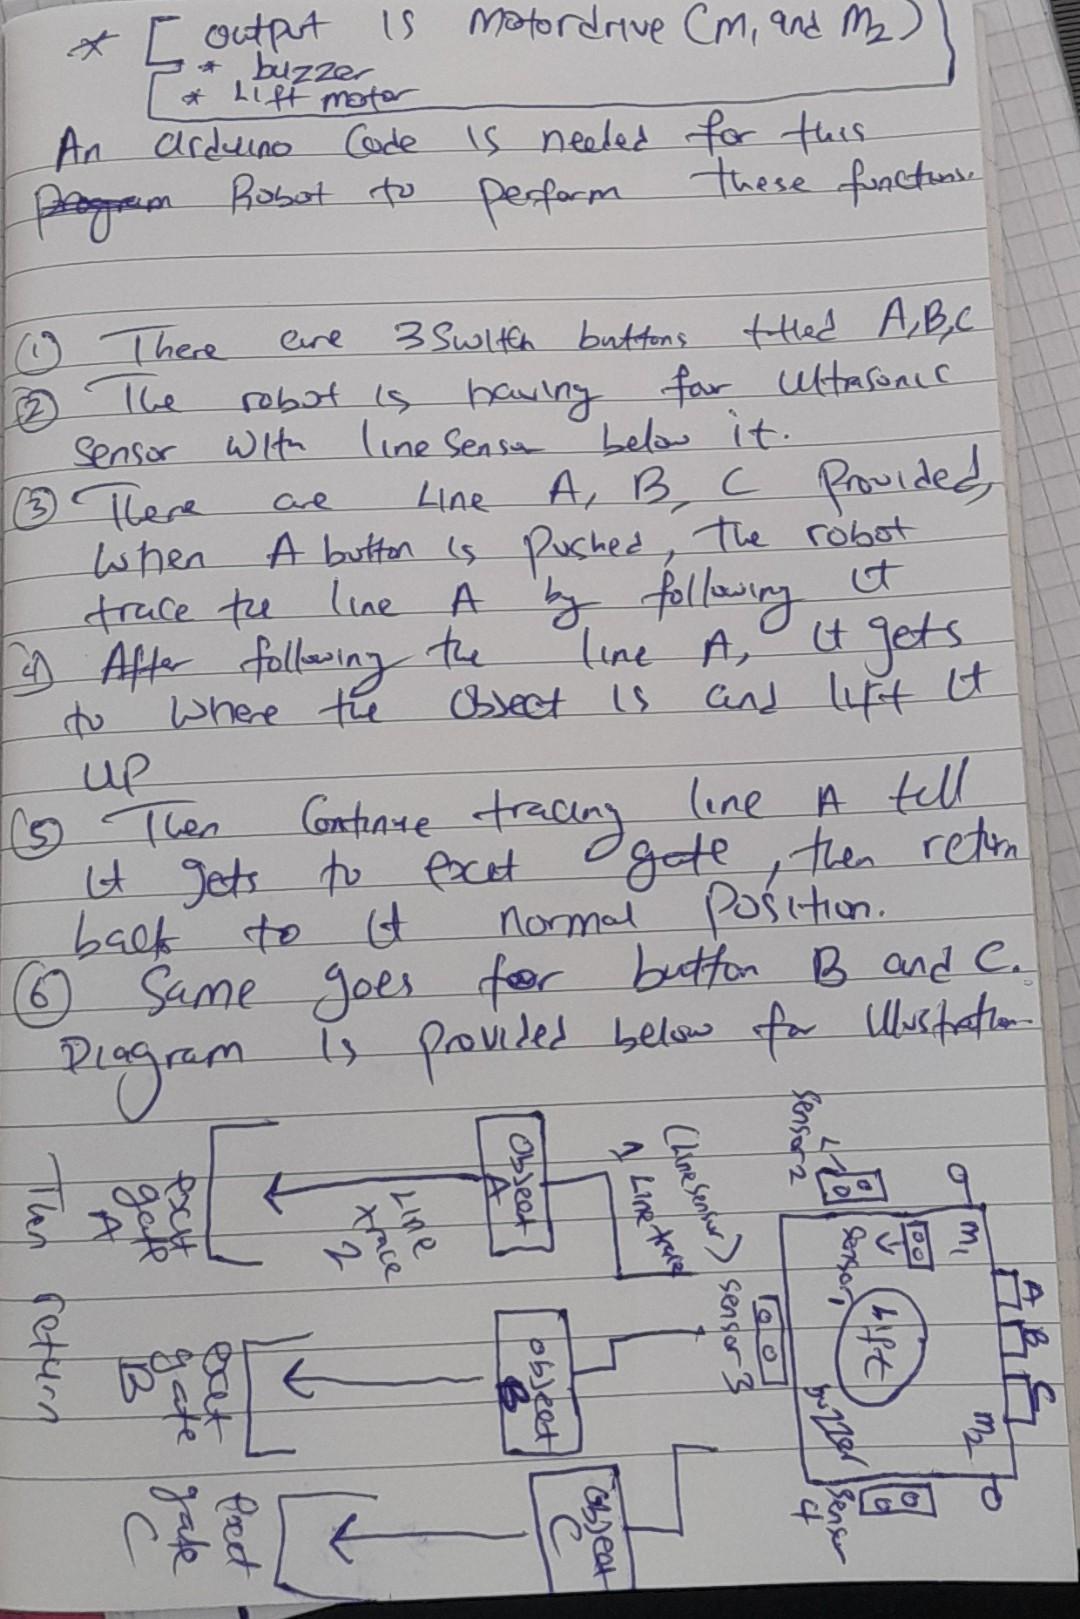 * [ output is Motordrive (M1 and M2)
* buzzer
* Lift motor
An arduino Code is needed for this
program Robot to perform these functions.
(1) There are 3 Switch buttons titled A,B,C
(2) The robot is having four Ultrasonic
Sensor With line Sensor below it.
(3) There are Line A, B, C Provided,
When A button is Pushed, The robot
trace the line A by following it
(4) After following the line A, it gets
to where the Object is and lift it
up
(5) Then Continue tracing line A till
it gets to exit gate, then return
back to it normal Position.
(6) Same goes for button B and C.
Diagram is provided below for Illustration.
A B C
M1
M2
Sensor 2
Sensor 1
Lift
buzzer
Sensor 3
Sensor 4
(Line Sensor)
A Line trace
Object A
Line trace 2
Exit gate A
Object B
Exit gate B
Object C
Exit gate C
Then return